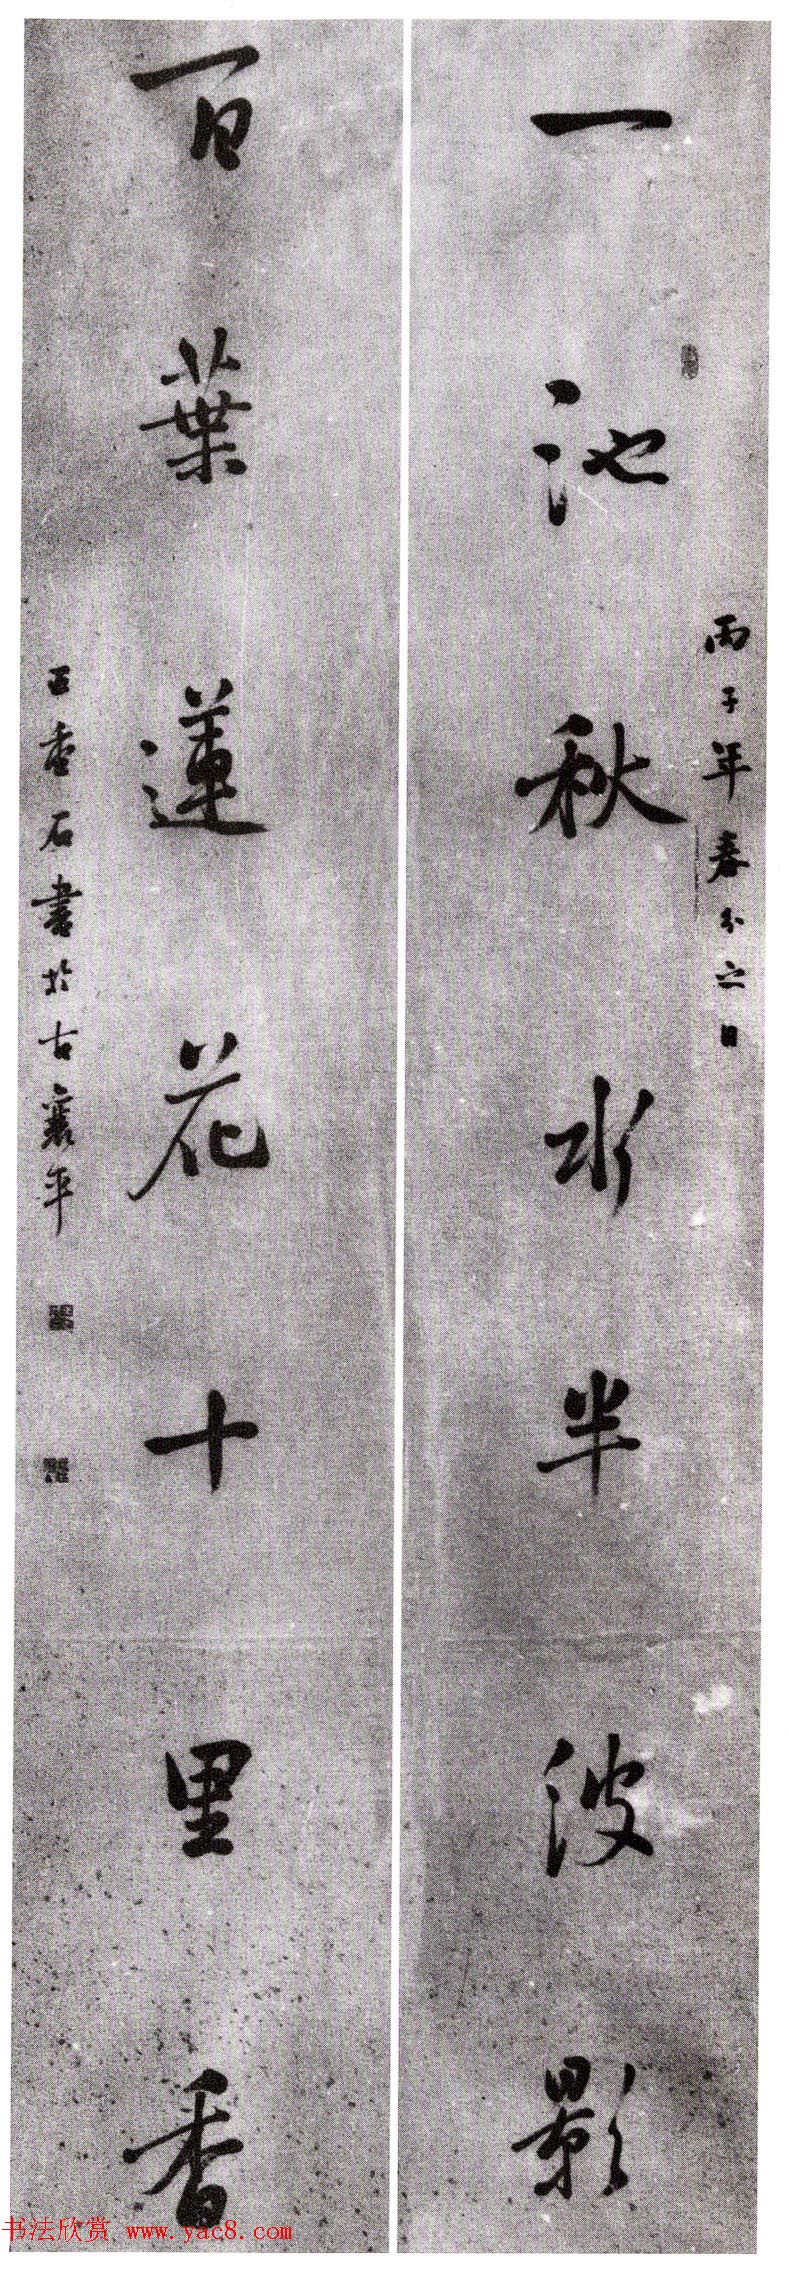 丙子年春分之日
一池秋水半波影
百葉蓮花十里香
王香石書於古襄平
书法欣赏 www.yac8.com